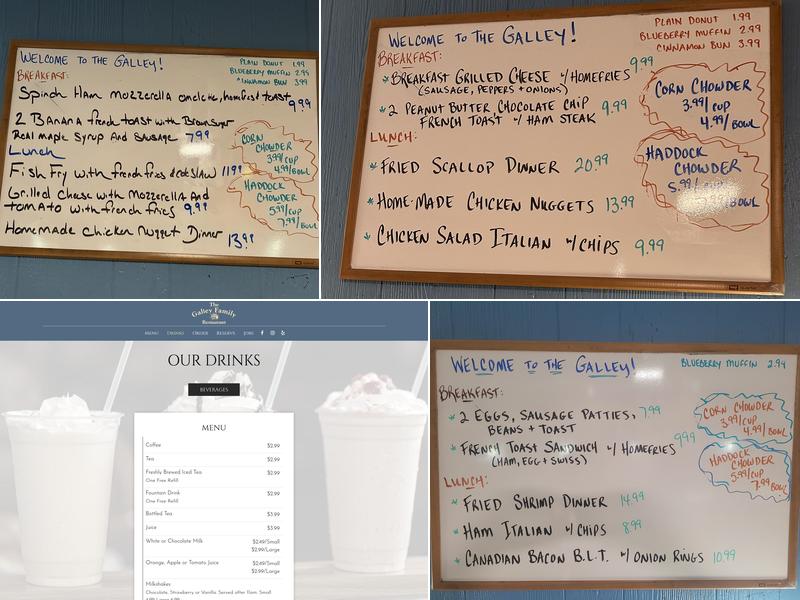 WELCOME TO THE GALLEY!
PLAIN DONUT 1.99
BLUEBERRY MUFFIN 2.99
CINNAMON BUN 3.99
BREAKFAST:
Spinch Ham mozzerella omelete, homefries toast 9.99
2 Banana french toast with Brown Sugar
Real maple Syrup And Sausage 7.99
Lunch
Fish Fry with french fries & cole slaw 11.99
Grilled Cheese with Mozzerella And
tomato with french fries 9.99
Homemade Chicken Nugget Dinner 13.99
CORN
CHOWDER
3.99/CUP
4.99/BOWL
HADDOCK
CHOWDER
5.99/CUP
7.99/BOWL
WELCOME TO THE GALLEY!
PLAIN DONUT 1.99
BLUEBERRY MUFFIN 2.99
CINNAMON BUN 3.99
BREAKFAST:
* BREAKFAST GRILLED CHEESE W/ HOMEFRIES 9.99
(SAUSAGE, PEPPERS + ONIONS)
* 2 PEANUT BUTTER CHOCOLATE CHIP 9.99
FRENCH TOAST W/ HAM STEAK
LUNCH:
* FRIED SCALLOP DINNER 20.99
* HOME-MADE CHICKEN NUGGETS 13.99
* CHICKEN SALAD ITALIAN W/ CHIPS 9.99
CORN CHOWDER
3.99/CUP
4.99/BOWL
HADDOCK
CHOWDER
5.99/CUP
BOWL
The
Galley Family
Restaurant
MENU DRINKS ORDER RESERVE JOBS
OUR DRINKS
BEVERAGES
MENU
Coffee $2.99
Tea $2.99
Freshly Brewed Iced Tea $2.99
One Free Refill
Fountain Drink $2.99
One Free Refill
Bottled Tea $3.99
Juice $3.99
White or Chocolate Milk $2.49/Small
$2.99/Large
Orange, Apple or Tomato Juice $2.49/Small
$2.99/Large
Milkshakes
Chocolate, Strawberry or Vanilla. Served after 11am. Small
WELCOME TO THE GALLEY!
BLUEBERRY MUFFIN 2.99
BREAKFAST:
* 2 EGGS, SAUSAGE PATTIES, 7.99
BEANS + TOAST
* FRENCH TOAST SANDWICH W/ HOMEFRIES 9.99
(HAM, EGG + SWISS)
LUNCH:
* FRIED SHRIMP DINNER 14.99
* HAM ITALIAN W/ CHIPS 8.99
* CANADIAN BACON B.L.T. W/ ONION RINGS 10.99
CORN CHOWDER
3.99/CUP
4.99/BOWL
HADDOCK
CHOWDER
5.99/CUP
7.99/BOWL